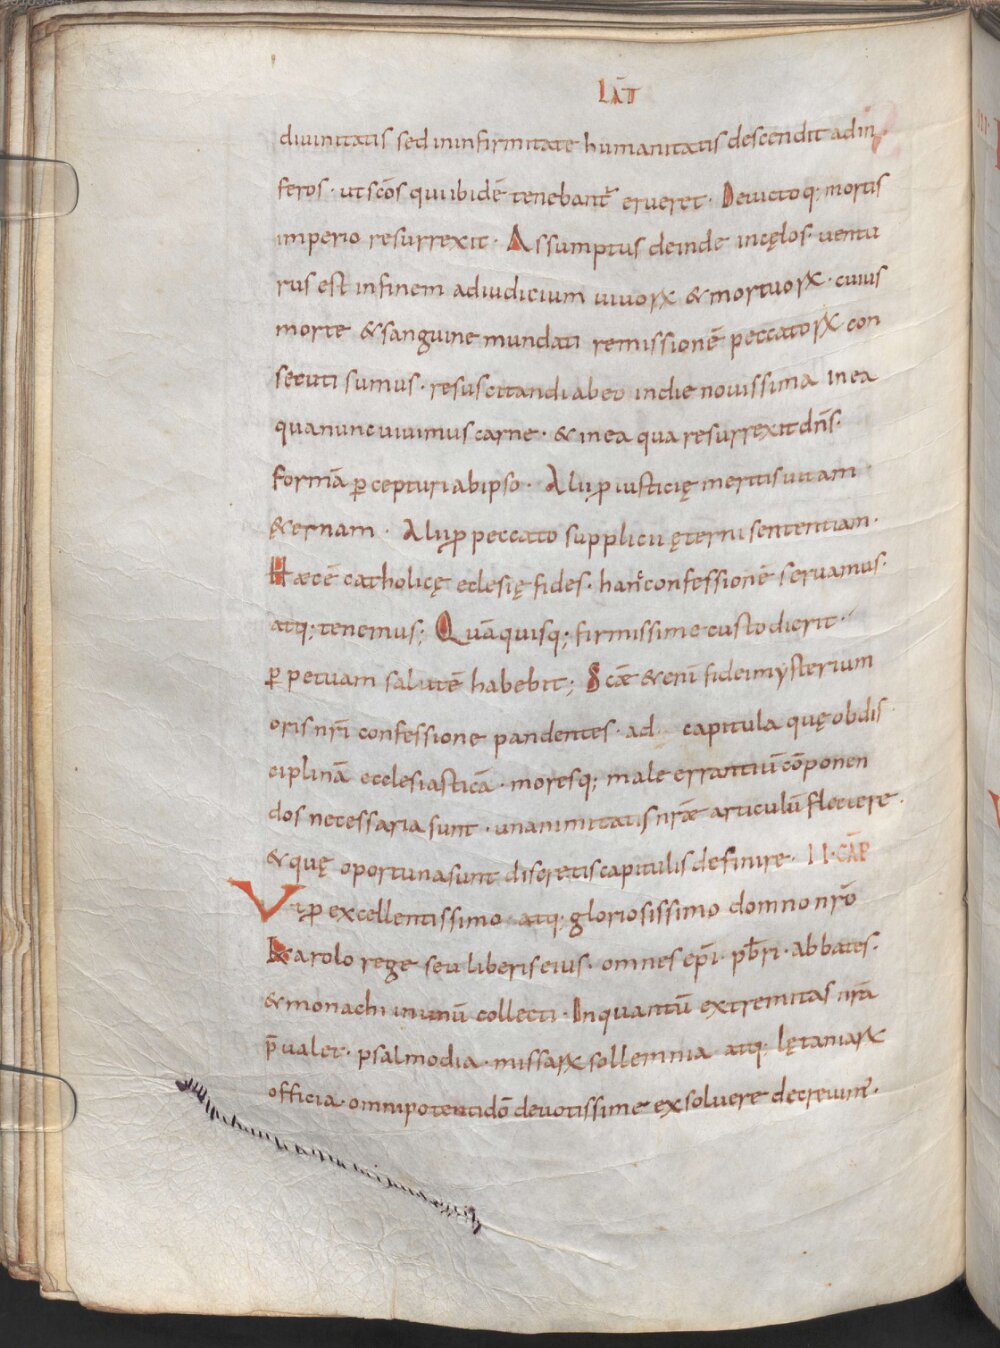 LAT̄
diuinitatis sed ininfirmitate humanitatis descendit adin
feros · utscōs quiibidē tenebant᷒ erueret · Deuictoq; mortis
imperio resurrexit · Assumptus deinde incęlos · uentu
rus est infinem adiudicium uiuoꝝ &mortuoꝝ · cuius
morte &sanguine mundati remissionē peccatoꝝ con
secuti sumus · resuscitandiabeo indie nouissima inea
quanuncuiuimus carne · & inea qua resurrexit dn̄s ·
formā ꝑcepturi abipso · Alii ꝑ iusticię meritis uitam
&ernam · Alii ꝑ peccato supplicii ęterni sententiam ·
Hæc ē catholicę eclesię fides · hanc confessionē seruamus ·
atq; tenemus; Quā quisq; firmissime custodierit ·
ꝑpetuam salutē habebit; Scǣ &enī fidei mysterium
oris nr̄i confessione pandentes · ad capitula quę obdis
ciplinā ecclesiasticā · moresq; male errantiū cōponen
dos necessaria sunt · unanimitatis nr̄æ articulū flectere ·
& quę oportuna sunt discretis capitulis definire · II · CAP̄
Ut ꝑ excellentissimo atq; gloriosissimo domno nr̄o
Karolo rege seu liberis eius · omnes ep̄i · pb̄ri · abbates ·
& monachi inunū collecti · Inquantū extremitas nr̄a
p̄ualet · psalmodia · missaꝝ sollemnia atq; lętaniaꝝ
officia · omnipotenti dō deuotissime exsoluere decreuim᷒ ·